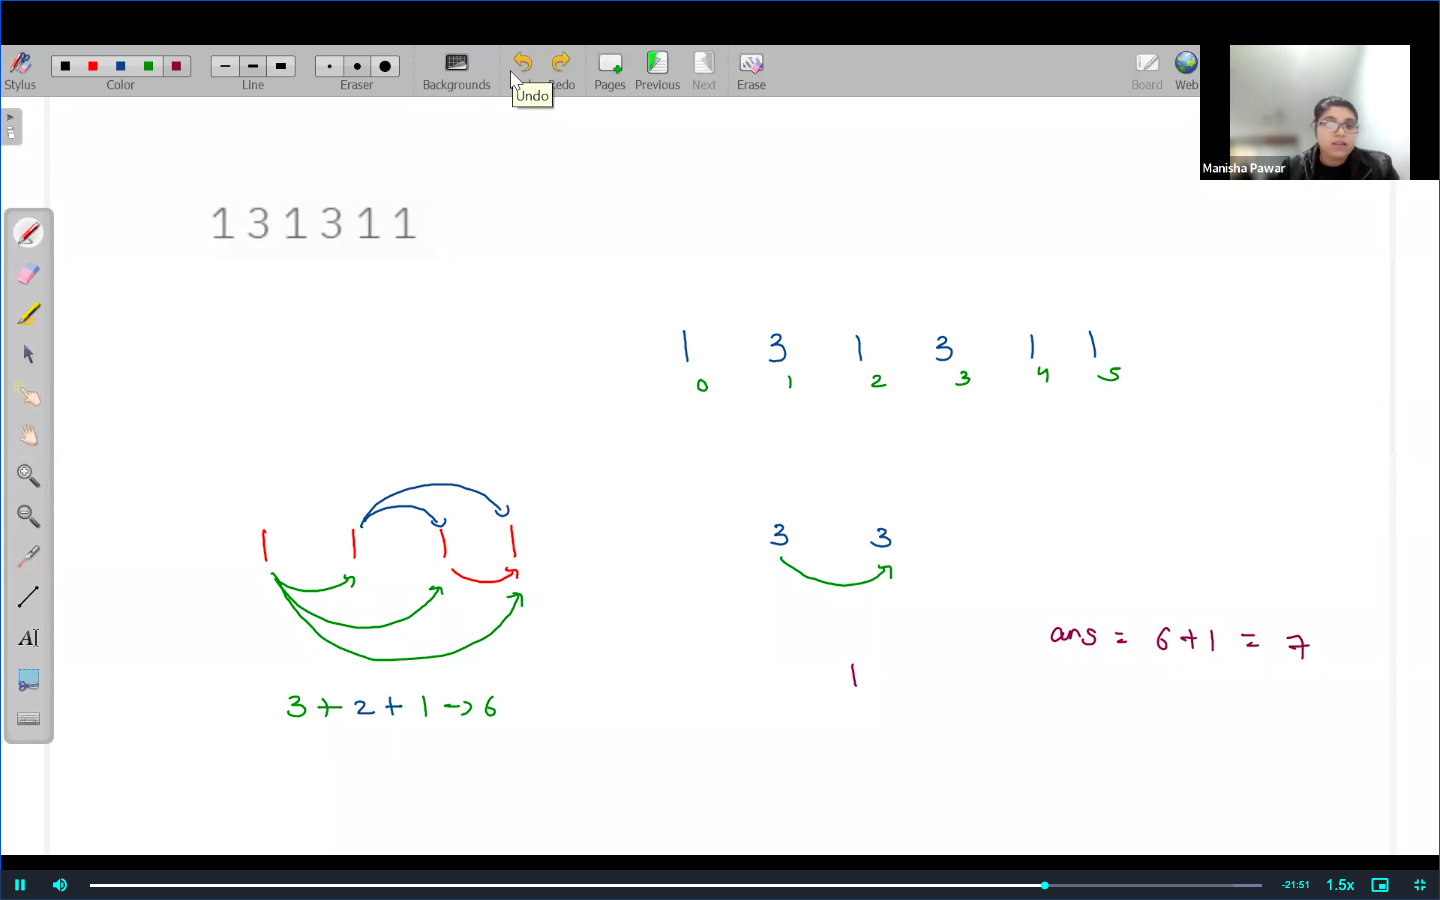 Stylus Color Line Eraser Backgrounds Undo Redo Pages Previous Next Erase Board Web
Undo
Manisha Pawar
1 3 1 3 1 1
1 3 1 3 1 1
0 1 2 3 4 5
1 1 1 1
3 3
ans = 6 + 1 = 7
1
3 + 2 + 1 -> 6
AI
-21:51 1.5x